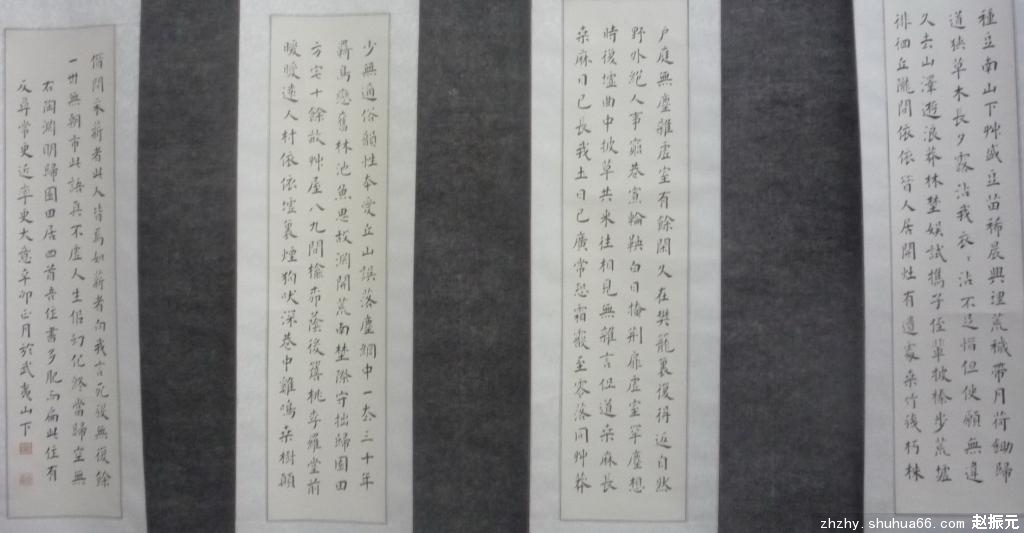 少無適俗韻性本愛丘山誤落塵網中一去三十年
羈鳥戀舊林池魚思故淵開荒南埜際守拙歸園田
方宅十餘畝艸屋八九間榆柳蔭後簷桃李羅堂前
曖曖遠人村依依墟裏煙狗吠深巷中雞鳴桑樹顛
戶庭無塵雜虛室有餘閒久在樊籠裏復得返自然
野外絕人事窮巷寡輪鞅白日掩荊扉虛室罕塵想
時復墟曲中披草共來往相見無雜言但道桑麻長
桑麻日已長我土日已廣常恐霜霰至零落同艸莽
種豆南山下艸盛豆苗稀晨興理荒穢帶月荷鋤歸
道狹草木長夕露沾我衣、沾不足惜但使願無違
久去山澤遊浪莽林埜娛試攜子侄輩披榛步荒墟
徘徊丘隴間依依昔人居井灶有遺處桑竹殘朽株
借問采薪者此人皆焉如薪者向我言死後無復餘
一世無朝市此語真不虛人生似幻化終當歸空無
右陶淵明歸園田居四首吾往書多肥而扁此作有
反尋常更近率更大意辛卯正月於武夷山下
zhzhy.shuhua66.com 赵振元